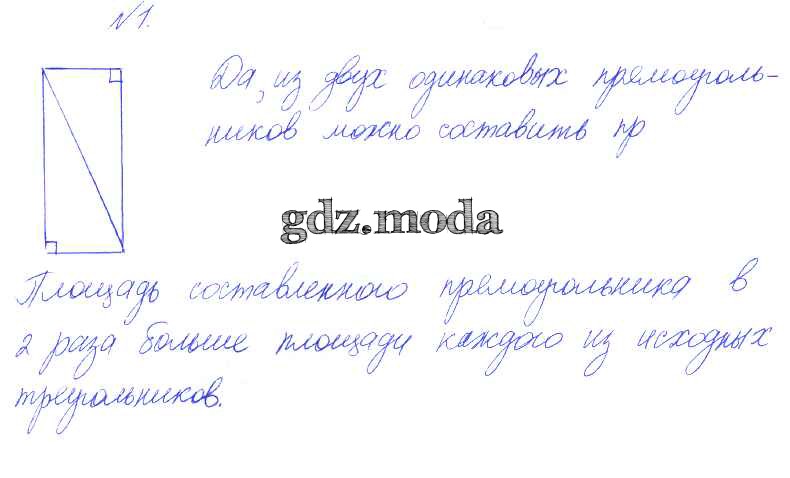 №1.
Да, из двух одинаковых прямоуголь-
ников можно составить пр
gdz.moda
Площадь составленного прямоугольника в
2 раза больше площади каждого из исходных
треугольников.